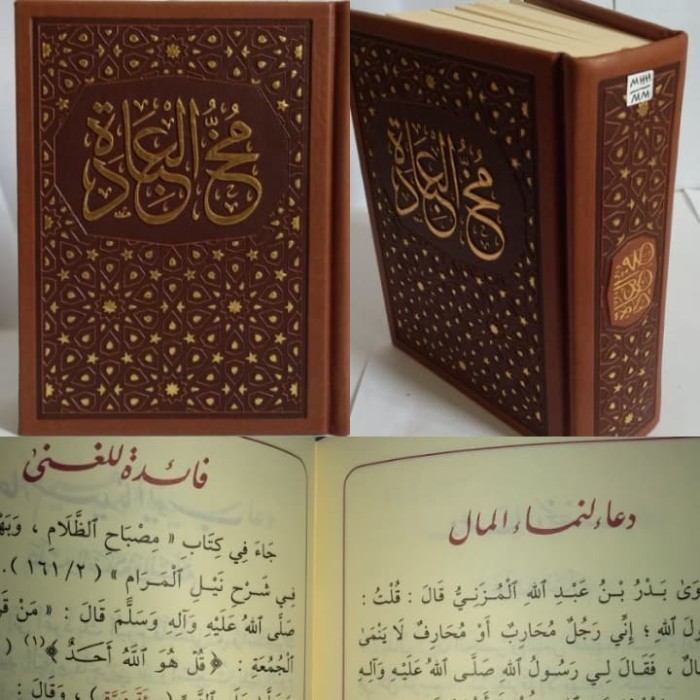 مُخُّ العِبَادَة
مُخُّ العِبَادَة
فائدة للغنى
جَاءَ فِي كِتَابِ « مِصْبَاحِ ٱلظَّلَامِ ، وَبَهْ
فِي شَرْحِ نَيْلِ ٱلْمَرَامِ » ( ٢/ ١٦١ ) .
صَلَّى ٱللهُ عَلَيْهِ وَآلِهِ وَسَلَّمَ قَالَ : « مَنْ قَ
ٱلْجُمُعَةِ : ﴿ قُلْ هُوَ ٱللَّهُ أَحَدٌ ﴾ (١) (
، وَقَالَ :
دعاء لنماء المال
وَىٰ بَدْرُ بْنُ عَبْدِ ٱللهِ ٱلْمُزَنِيُّ قَالَ : قُلْتُ :
ولَ ٱللهِ ؛ إِنِّي رَجُلٌ مُحَارِبٌ أَوْ مُحَارِفٌ لَا يَنْمَىٰ
الٌ ، فَقَالَ لِي رَسُولُ ٱللهِ صَلَّى ٱللهُ عَلَيْهِ وَآلِهِ